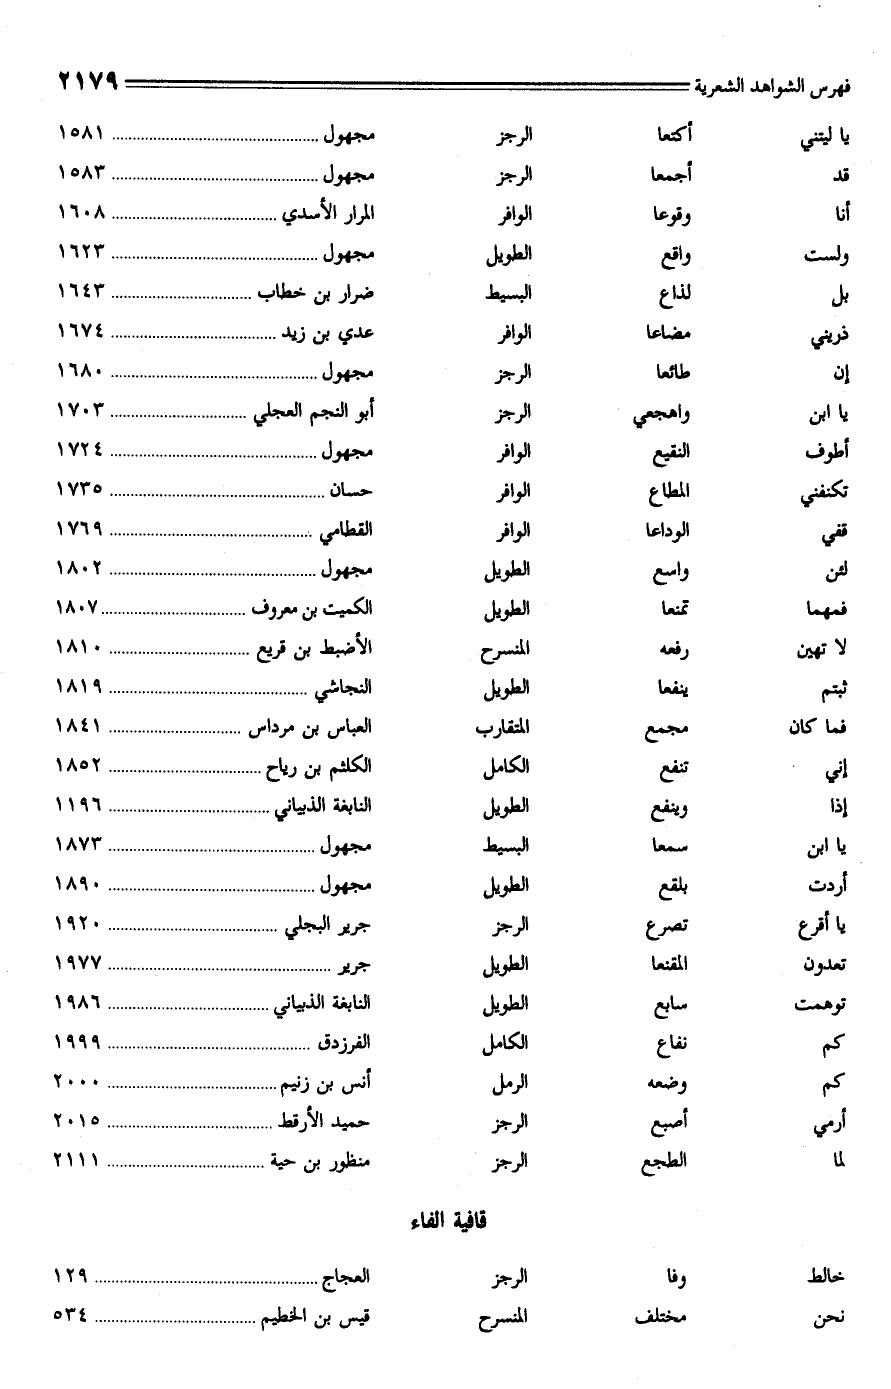 فهرس الشواهد الشعرية ٢١٧٩
يا ليتني أكتعا الرجز مجهول ١٥٨١
قد أجمعا الرجز مجهول ١٥٨٣
أنا وقوعا الوافر المرار الأسدي ١٦٠٨
ولست واقع الطويل مجهول ١٦٢٣
بل لذاع البسيط ضرار بن خطاب ١٦٤٣
ذريني مضاعا الوافر عدي بن زيد ١٦٧٤
إن طائعا الرجز مجهول ١٦٨٠
يا ابن واهجعي الرجز أبو النجم العجلي ١٧٠٣
أطوف النقيع الوافر مجهول ١٧٢٤
تكنفني المطاع الوافر حسان ١٧٣٥
قفي الوداعا الوافر القطامي ١٧٦٩
لئن واسع الطويل مجهول ١٨٠٢
فمهما تمنعا الطويل الكميت بن معروف ١٨٠٧
لا تهين رفعه المنسرح الأضبط بن قريع ١٨١٠
ثبتم ينفعا الطويل النجاشي ١٨١٩
فما كان مجمع المتقارب العباس بن مرداس ١٨٤١
إني تنفع الكامل الكلثم بن رياح ١٨٥٢
إذا وينفع الطويل النابغة الذبياني ١١٩٦
يا ابن سمعا البسيط مجهول ١٨٧٣
أردت بلقع الطويل مجهول ١٨٩٠
يا أقرع تصرع الرجز جرير البجلي ١٩٢٠
تعدون المقنعا الطويل جرير ١٩٧٧
توهمت سابع الطويل النابغة الذبياني ١٩٨٦
كم نفاع الكامل الفرزدق ١٩٩٩
كم وضعه الرمل أنس بن زنيم ٢٠٠٠
أرمي أصبع الرجز حميد الأرقط ٢٠١٥
لما الطجع الرجز منظور بن حية ٢١١١
قافية الفاء
خالط وفا الرجز العجاج ١٢٩
نحن مختلف المنسرح قيس بن الخطيم ٥٣٤